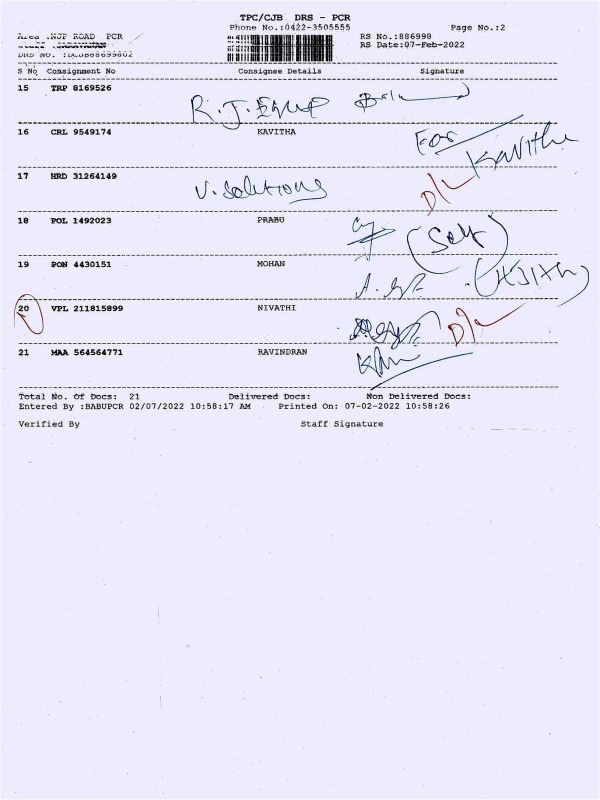 TPC/CJB DRS - PCR
Phone No.:0422-3505555 Page No.:2
Area :NGP ROAD PCR RS No.:886998
RS Date:07-Feb-2022
DRS No.
S No Consignment No Consignee Details Signature
15 TRP 8169526 R.J. EQUP
16 CRL 9549174 KAVITHA For Kavitha
17 HRD 31264149 V. Solutions D/L
18 POL 1492023 PRABU (Self)
19 PON 4430151 MOHAN
20 VPL 211815899 NIVATHI D/L
21 MAA 564564771 RAVINDRAN
Total No. Of Docs: 21 Delivered Docs: Non Delivered Docs:
Entered By :BABUPCR 02/07/2022 10:58:17 AM Printed On: 07-02-2022 10:58:26
Verified By Staff Signature